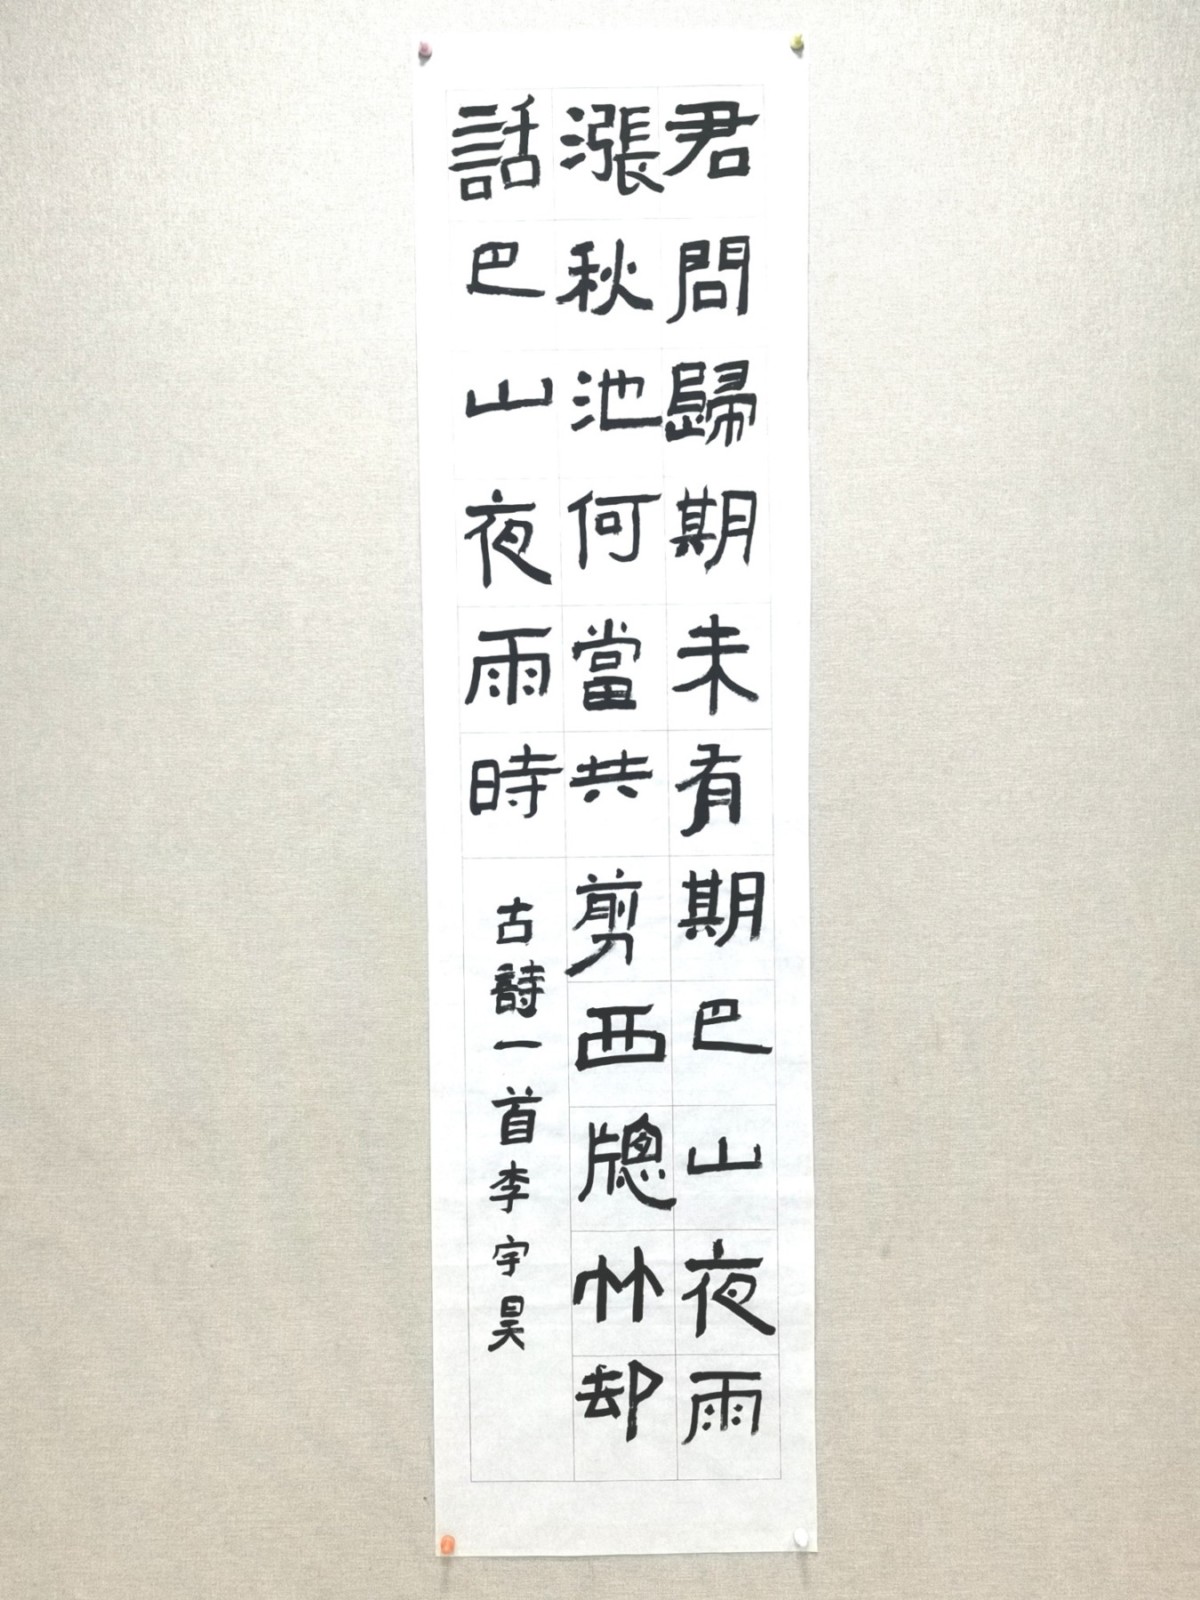 君問歸期未有期巴山夜雨
漲秋池何當共剪西牕竹却
話巴山夜雨時
古詩一首李宇昊